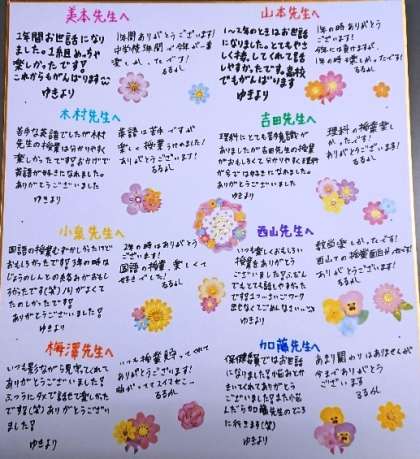 美本先生へ
1年間お世話になり
ました。1組めっちゃ
楽しかったです!
これからもがんばります
ゆきより
1年間ありがとうございます!
中学校3年間で今年が一番
楽しかったです!
るるんば
山本先生へ
1〜2年のときはお世話
になりました。とてもやさし
く接してくれて話し
やすかったです。高校
でもがんばります
ゆきより
1年の時ありがとう
ございます!
るるんば
木村先生へ
苦手な英語でしたが木村
先生の授業は分かりやすく
楽しかったです!おかげで
英語が好きになれました。
ありがとうございました
ゆきより
英語は苦手ですが
楽しく授業うけれました!
ありがとうございます!
るるんば
吉田先生へ
理科にとても苦手意識が
ありましたが吉田先生の授業
がおもしろくて分かりやすく理科
が今では好きになれました。
ありがとうございました
ゆきより
理科の授業楽し
かったです!
ありがとうございます!
るるんば
小泉先生へ
国語の授業むずかしかったけど
おもしろかったです!3年の時は
おもし
ろかったです(笑)ノリがよくて
たのしかったです!
ありがとうございました!
ゆきより
2年の時はありがとう
ございます!
国語の授業、楽しくて
好きでした!
るるんば
西山先生へ
いつも楽しくおもしろい
授業をありがとう
ございました!
でもとても話しやすかった
です!
ゆきより
数学楽しかったです!
西山Tの授業面白かったです!
ありがとうございます!
るるんば
梅澤先生へ
いつも影ながら見守ってくれて
ありがとうございました!
ふつうにタメで話せて楽しかった
です(笑)ありがとうござい
ました!
ゆきより
いつも授業見守ってくれて
ありがとうございます!
るるんば
加藤先生へ
保健委員ではお世話
になりました!
きいてくれてありがとう
ございました!また
んだら加藤先生のところ
に行きます(笑)
ゆきより
あまり関わりはありませんが
今までありがとう
ございます
るるんば